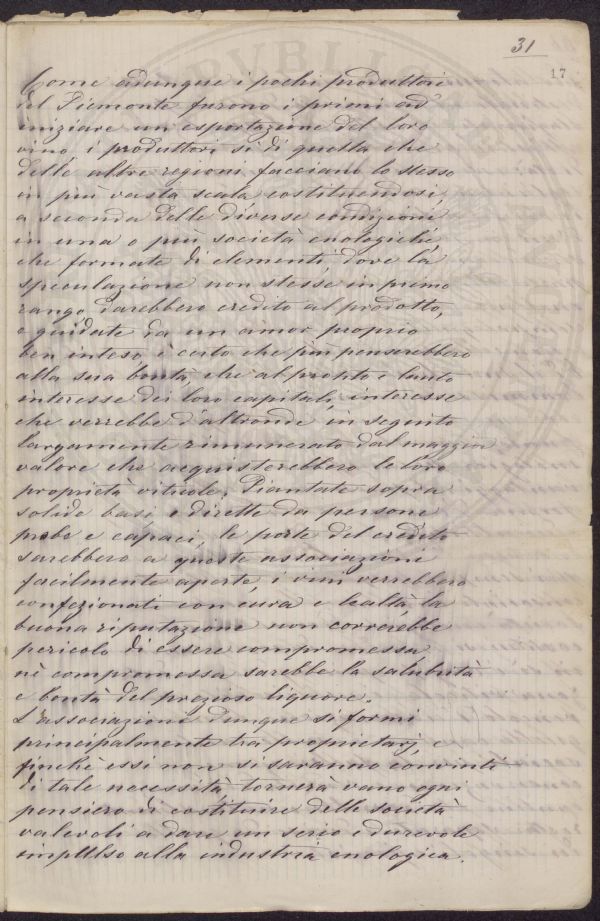 31
17
Come adunque i pochi produttori
del Piemonte furono i primi ad
iniziare un esportazione del loro
vino, i produttori si di questa che
delle altre regioni facciano lo stesso
in più vasta scala, costituendosi,
a seconda delle diverse condizioni,
in una o più società enologiche,
che formate di elementi dove la
speculazione non stesse in primo
rango, darebbero credito al prodotto,
e guidate da un amor proprio
ben inteso, è certo che più penserebbero
alla sua bontà, che al pronto e lauto
interesse dei loro capitali, interesse
che verrebbe d'altronde in seguito
largamente rimunerato dal maggior
valore che acquisterebbero le loro
proprietà viticole. Piantate sopra
solide basi, e dirette da persone
probe e capaci, le porte del credito
sarebbero a queste associazioni
facilmente aperte, i vini verrebbero
confezionati con cura e lealtà, la
buona riputazione non correrebbe
pericolo di essere compromessa,
nè compromessa sarebbe la salubrità
e bontà del prezioso liquore.
L'associazione dunque si formi
principalmente tra proprietarj, e
finchè essi non si saranno convinti
di tale necessità tornerà vano ogni
pensiero di costituire delle società
valevoli a dare un serio e durevole
impulso alla industria enologica.